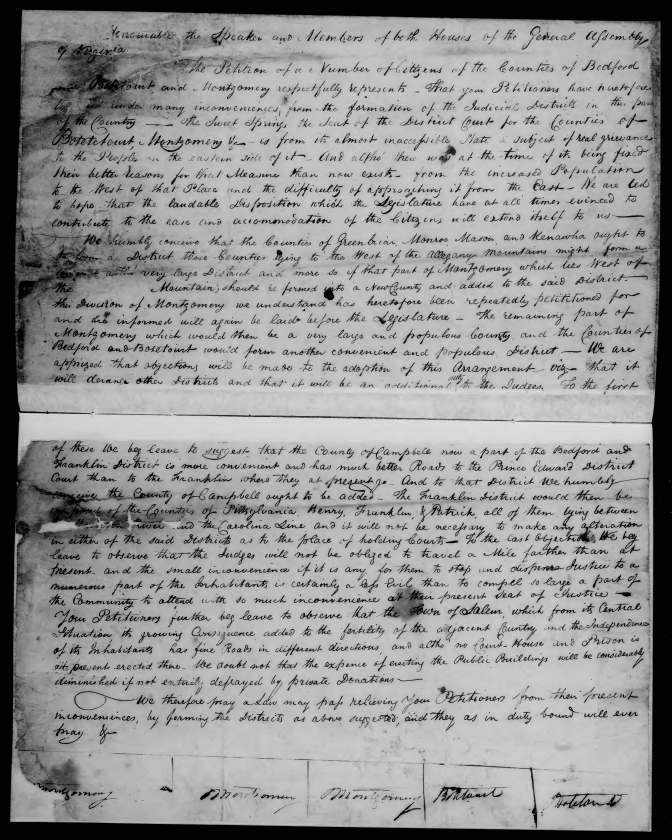 Honourable the Speaker and Members of both Houses of the General Assembly
of Virginia
The Petition of a Number of Citizens of the Counties of Bedford
Botetourt and Montgomery respectfully represents - That your Petitioners have heretofore
under many inconveniences, from the formation of the Judicial Districts in this part
of the Country - The Sweet Springs the Seat of the District Court for the Counties of
Botetourt, Montgomery &c - is from its almost inaccessible State a subject of real grievance
to the People on the eastern side of it - And altho' there was at the time of its being fixed
their better reasons for that Measure than now exist - from the increased Population
to the West of that Place and the difficulty of approaching it from the East - We are led
to hope, that the laudable Disposition which the Legislature have at all times evinced to
contribute to the ease and accommodation of the Citizens will extend itself to us -
We humbly conceive that the Counties of Greenbriar, Monroe, Mason, and Kenawha ought to
form a District those Counties lying to the West of the allegany mountains might form a
very large District and more so if that part of Montgomery which lies West of
the Mountain, should be formed into a New County and added to the said District.-
the Division of Montgomery we understand has heretofore been repeatedly petitioned for
and are informed will again be laid before the Legislature - The remaining part of
Montgomery which would then be a very large and populous County, and the Counties of
Bedford and Botetourt would form another convenient and populous District - We are
apprized that objections will be made to the adoption of this Arrangement viz - that it
will derange other Districts and that it will be an additional duty to the Judges. To the first
of these We beg leave to suggest, that the County of Campbell now a part of the Bedford and
Franklin District is more convenient and has much better Roads to the Prince Edward District
Court than to the Franklin where they at present go - And to that District We humbly
conceive the County of Campbell ought to be added - The Franklin District would then be
composed of the Counties of Pittsylvania, Henry, Franklin, & Patrick, all of them lying between
river and the Carolina Line and it will not be necessary to make any alteration
in either of the said Districts as to the place of holding Courts - To the last Objection We beg
leave to observe that the Judges will not be obliged to travel a Mile farther than at
present. and the small inconvenience if it is any for them to stop and dispense Justice to a
numerous part of the Inhabitants is certainly a less Evil than to compel so large a part of
the Community to attend with so much inconvenience at their present Seat of Justice -
Your Petitioners further beg leave to observe that the Town of Salem which from its Central
Situation its growing Consequence added to the fertility of the adjacent Country and the Independence
of its Inhabitants has fine Roads in different directions, and altho no Court House and Prison is
at present erected there - We doubt not that the expence of erecting the Public Buildings will be considerably
diminished if not entirely defrayed by private Donations -
We therefore pray a Law may pass relieving Your Petitioners from their present
inconveniences, by forming the Districts as above suggested, and they as in duty bound will ever
pray &c
Montgomery
Montgomery
Montgomery
Botetourt